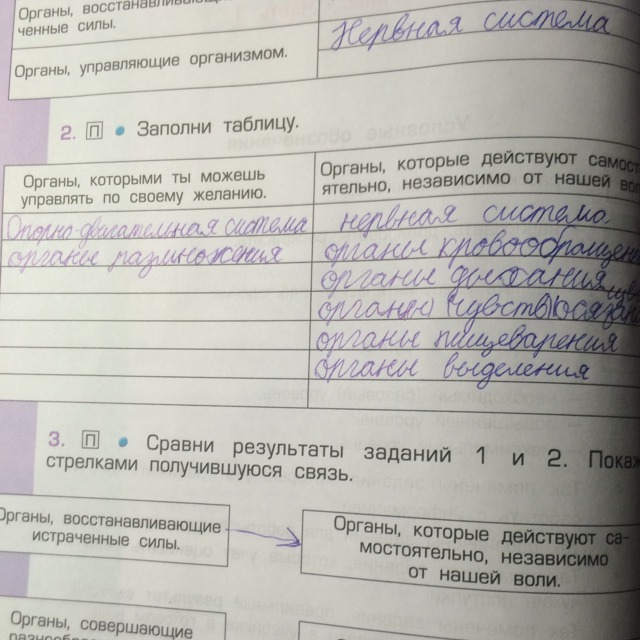 Органы, восстанавливающи
ченные силы.
Органы, управляющие организмом.
Нервная система
2. П • Заполни таблицу.
Органы, которыми ты можешь
управлять по своему желанию.
Органы, которые действуют самост
ятельно, независимо от нашей вол
Опорно-двигательная система
нервная система
органы размножения
органы кровообращени
органы дыхания
органы чувств осязан
органы пищеварения
органы выделения
3. П • Сравни результаты заданий 1 и 2. Покаж
стрелками получившуюся связь.
Органы, восстанавливающие
истраченные силы.
Органы, которые действуют са-
мостоятельно, независимо
от нашей воли.
Органы, совершающие